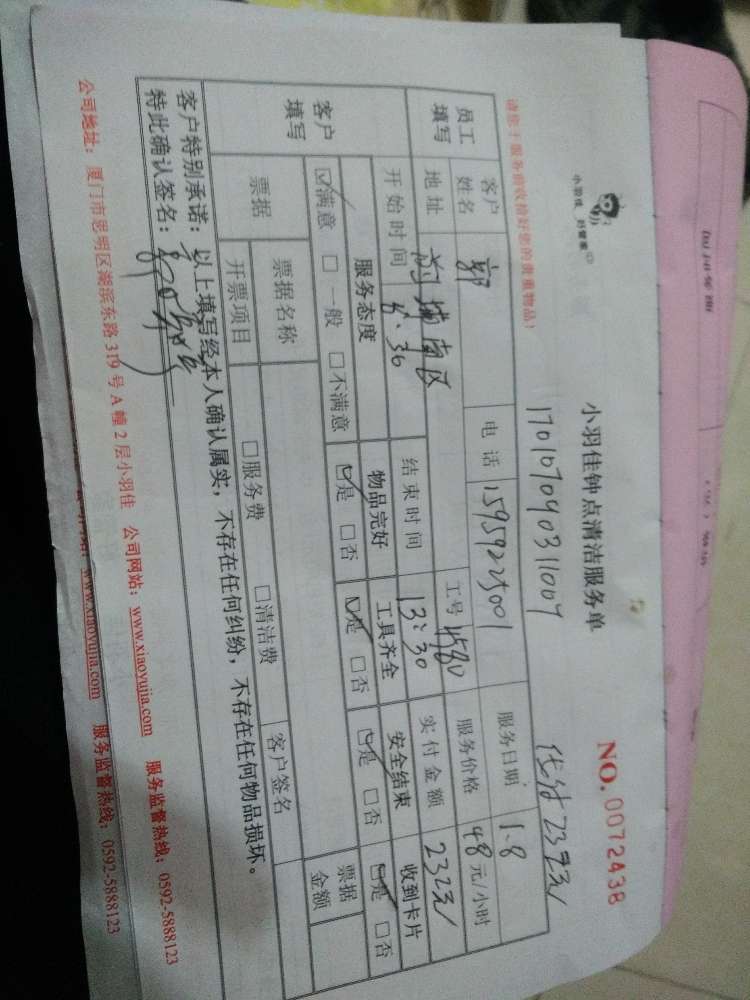 小羽佳 好管家
小羽佳钟点清洁服务单
NO. 0072438
170107090311007
请您于服务前收拾好您的贵重物品!
员工填写
客户姓名 郭 电话 15959225001 服务日期 1.8
地址 前埔南区 工号 服务价格 48元/小时
开始时间 8:30 结束时间 13:30 实付金额 232元
客户填写
服务态度 物品完好 工具齐全 安全结束 收到卡片
☑满意 □一般 □不满意 ☑是 □否 ☑是 □否 ☑是 □否 ☑是 □否
票据 票据名称 客户签名 票据金额
开票项目 □服务费 □清洁费
客户特别承诺:以上填写经本人确认属实,不存在任何纠纷,不存在任何物品损坏。
特此确认签名:
公司地址:厦门市思明区湖滨东路319号A幢2层小羽佳 公司网站:www.xiaoyujia.com 服务监督热线:0592-5888123
www.xiaoyujia.com 服务监督热线:0592-5888123